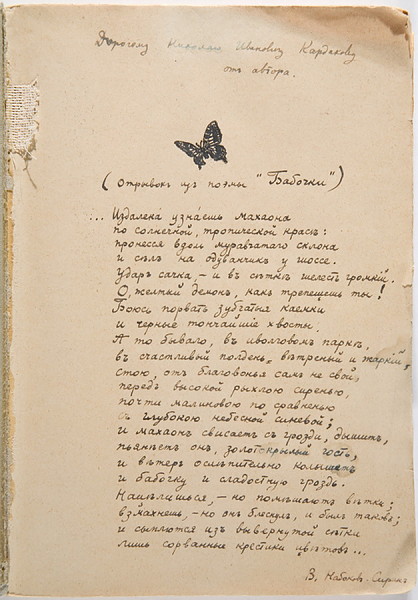 Дорогому Николаю Ивановичу Кардакову
отъ автора.
(Отрывокъ изъ поэмы "Бабочки")
... Издалека узнаешь махаона
по солнечной, тропической красѣ:
пронесся вдоль муравчатаго склона
и сѣлъ на одуванчикъ у шоссе.
Ударъ сачка, – и въ сѣткѣ шелестъ громкій.
О, желтый демонъ, какъ трепещешь ты!
Боюсь порвать зубчатыя каемки
и черные тончайшіе хвосты.
А то бывало, въ иволговомъ паркѣ,
въ счастливый полдень, вѣтреный и жаркій,
стою, отъ благовонья самъ не свой,
передъ высокой рыхлою сиренью,
почти малиновою по сравненью
съ глубокою небесной синевой;
и махаонъ свисаетъ съ грозди, дышитъ,
пьянѣетъ онъ, золотокрылый гость,
и вѣтеръ ослѣпительно колышетъ
и бабочку и сладостную гроздь.
Нацѣлишься, – но помѣшаютъ вѣтки;
взмахнешь, – но онъ блеснулъ, и былъ таковъ;
и сыплются изъ вывернутой сѣтки
лишь сорванные крестики цвѣтовъ...
В. Набоковъ-Сиринъ